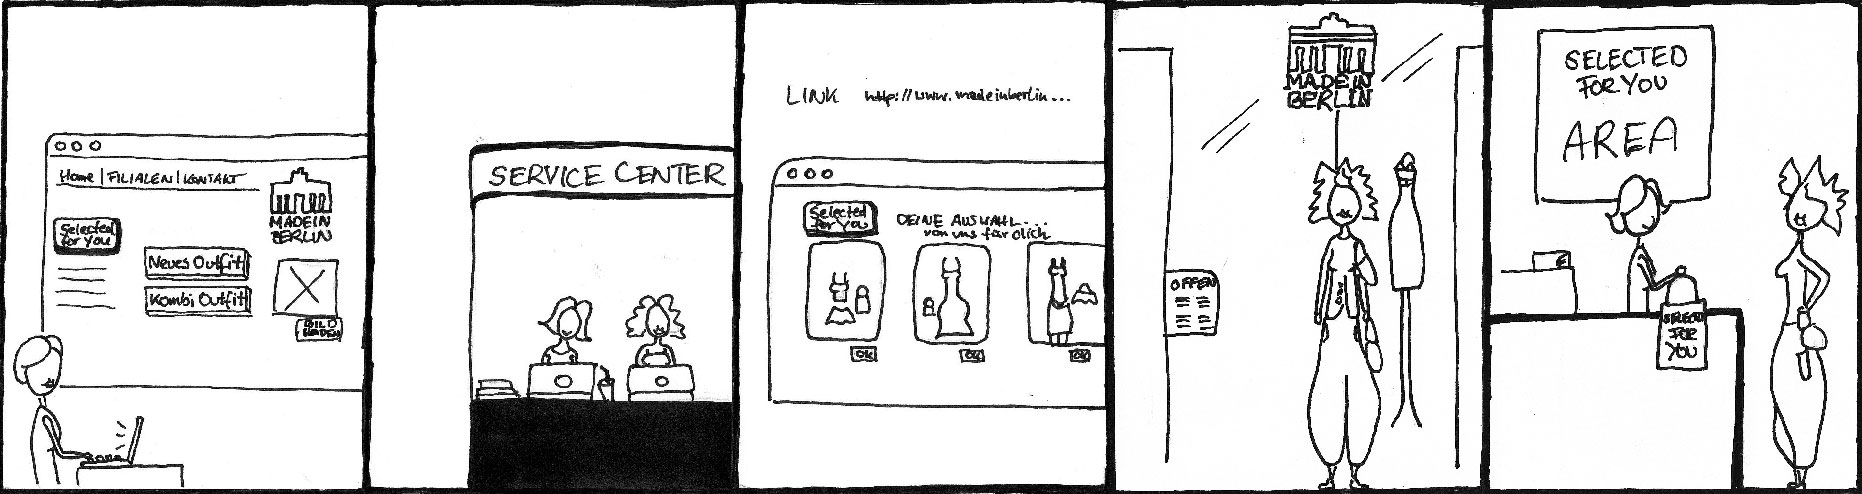 Home | FILIALEN | KONTAKT
MADE IN
BERLIN
Selected
for You
Neues Outfit
Kombi Outfit
BILD
LADEN
SERVICE CENTER
LINK http://www.madeinberlin...
Selected
for You
DEINE AUSWAHL...
von uns für dich
OK
OK
OK
MADE IN
BERLIN
OFFEN
SELECTED
FOR YOU
AREA
SELECTED
FOR
YOU